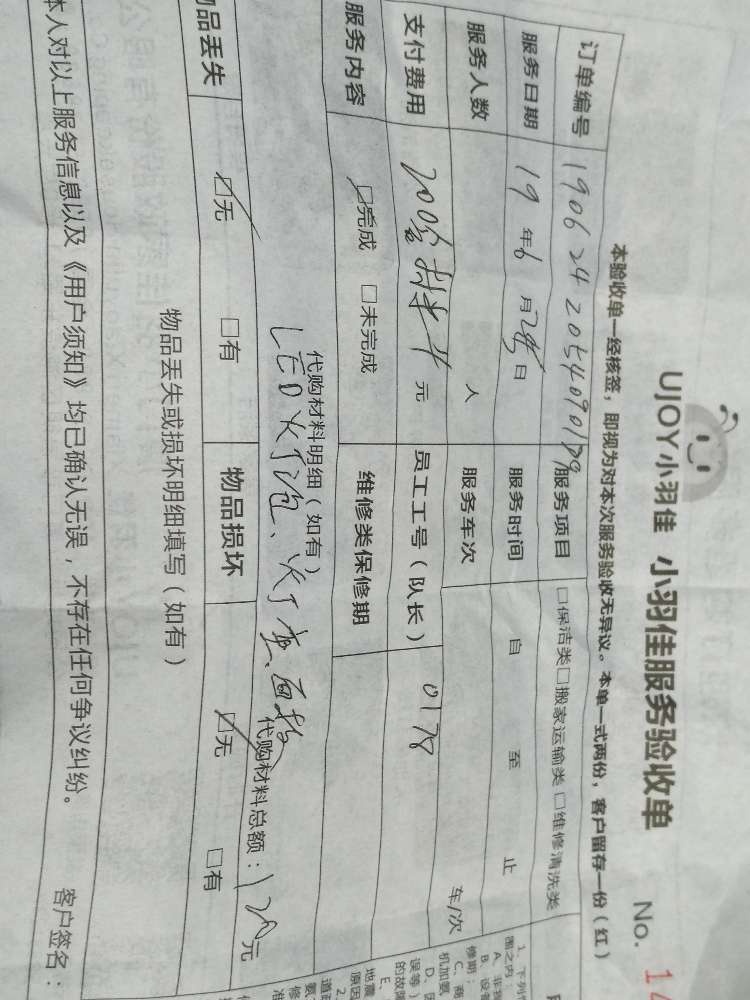 UJOY小羽佳 小羽佳服务验收单 No. 1
本验收单一经核签，即视为对本次服务验收无异议。本单一式两份，客户留存一份（红）
订单编号 1906242054090179 服务项目 □保洁类□搬家运输类□维修清洗类
服务日期 19年6月24日 服务时间 自 至 止
服务人数 人 服务车次 车/次
支付费用 200含材料 元 员工工号（队长） 0178
服务内容 ☑完成 □未完成 维修类保修期
代购材料明细（如有） 代购材料总额：120元
LED灯泡、灯座、面板
物品丢失 ☑无 □有 物品损坏 ☑无 □有
物品丢失或损坏明细填写（如有）
本人对以上服务信息以及《用户须知》均已确认无误，不存在任何争议纠纷。 客户签名：